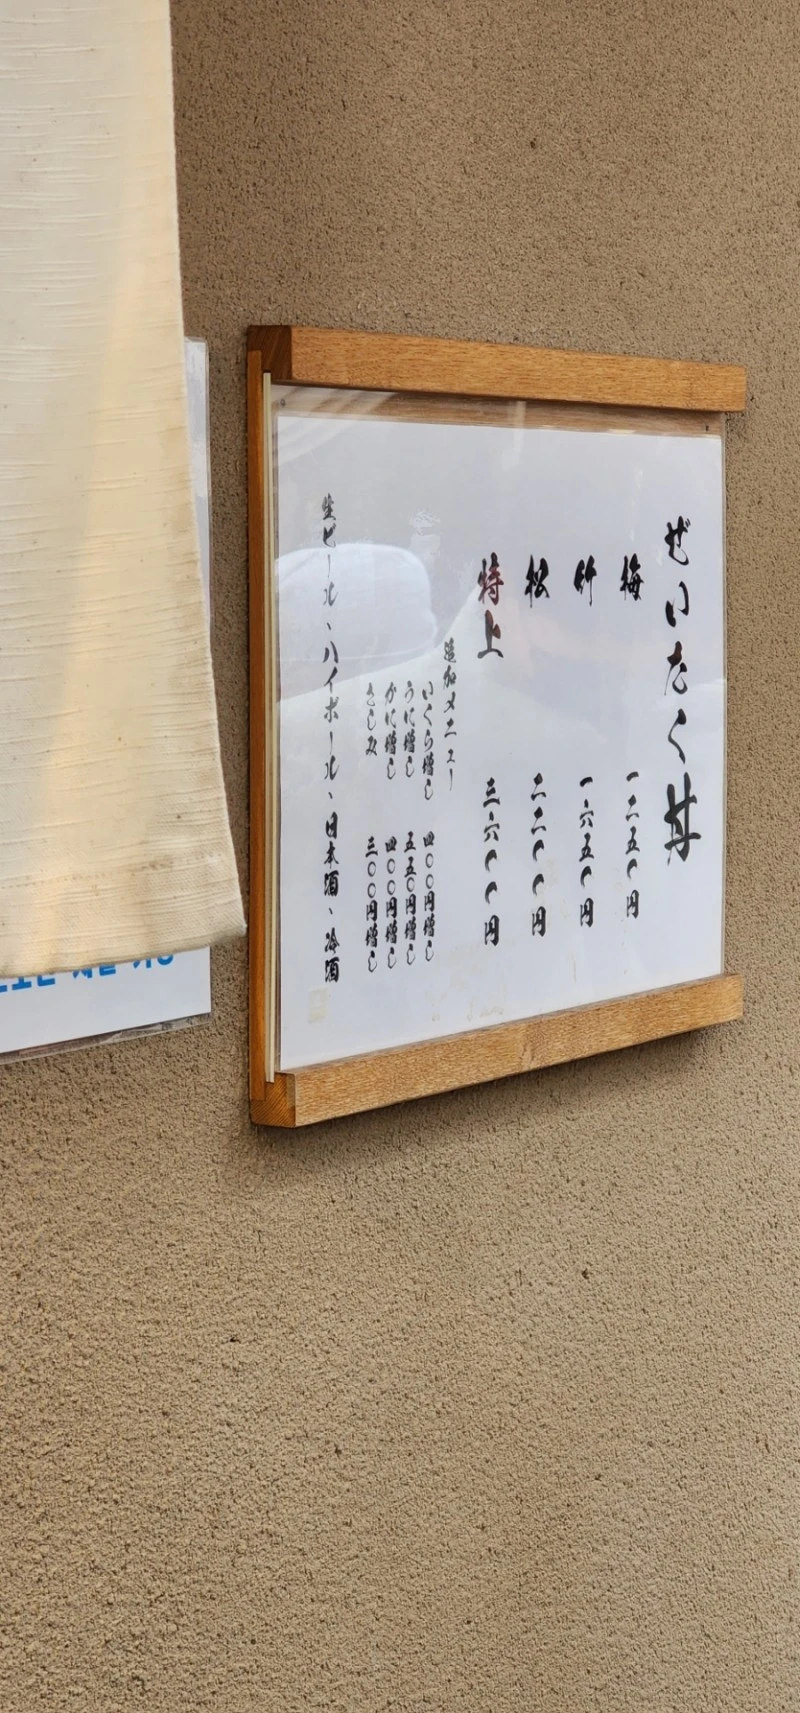 ぜいたく丼
梅 一二五〇円
竹 一六五〇円
松 二二〇〇円
特上 三六〇〇円
追加メニュー
いくら増し 四〇〇円増し
うに増し 五五〇円増し
かに増し 四〇〇円増し
さしみ 三〇〇円増し
生ビール、ハイボール、日本酒、冷酒